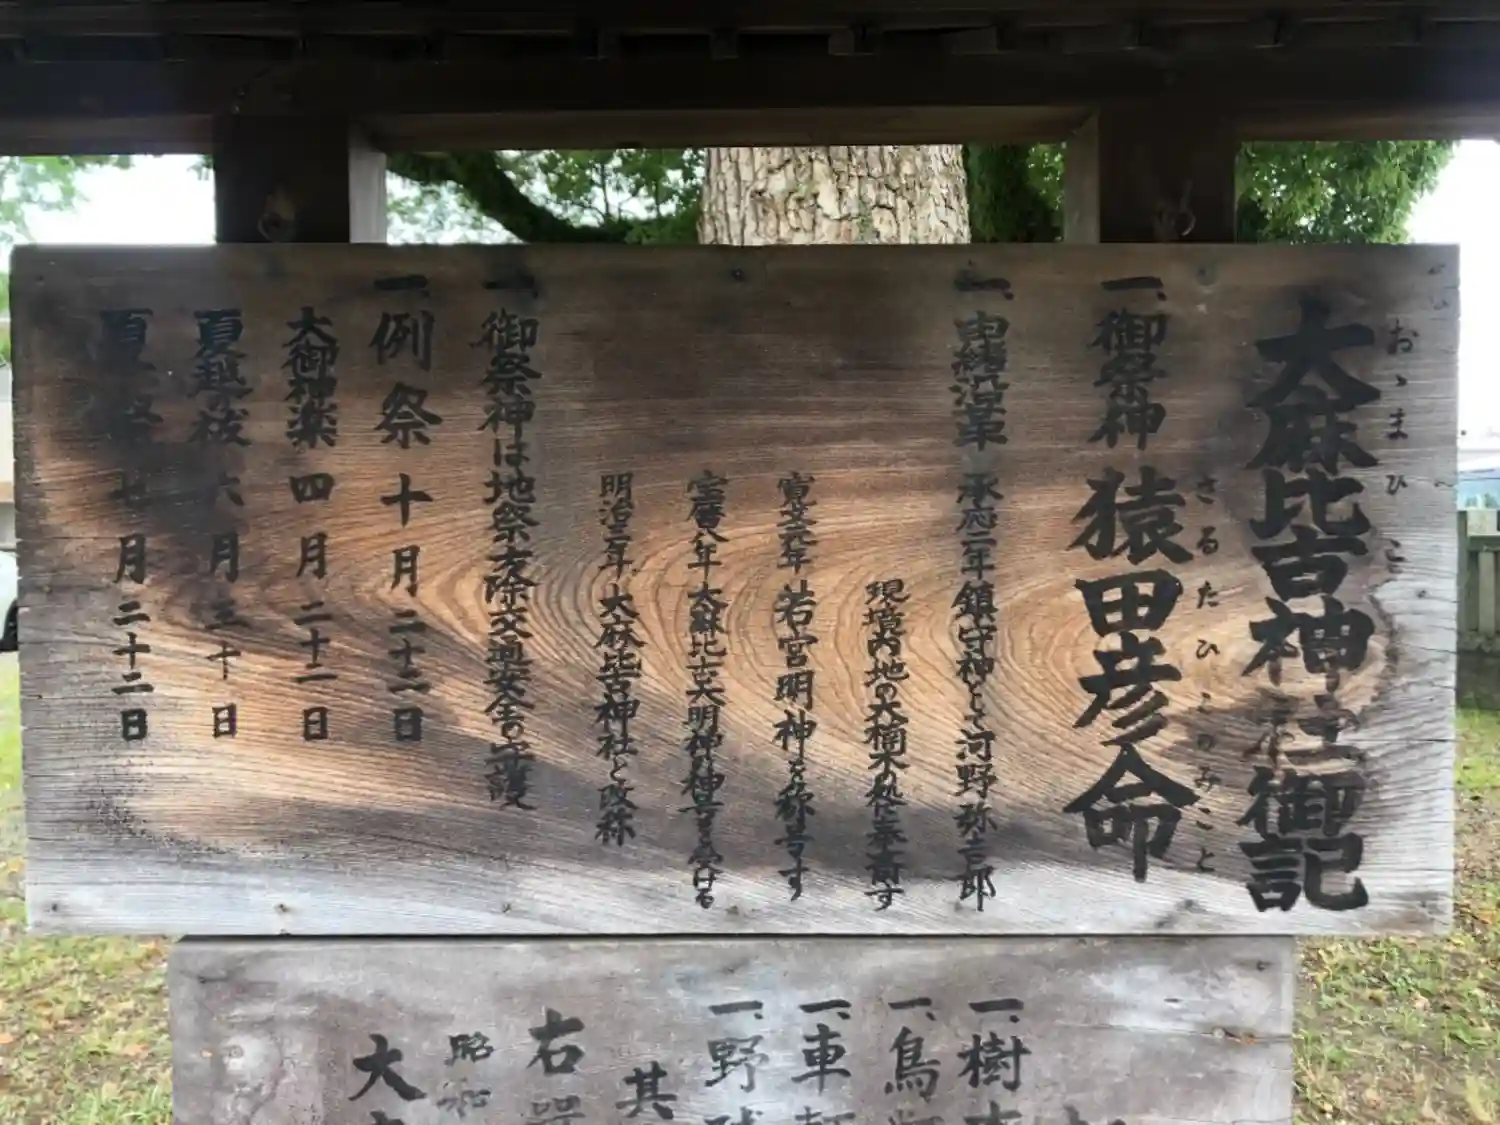 おゝまひこ
大麻比古神社御記
一、御祭神 猿田彦命
さるたひこのみこと
一、由緒沿革 承応二年鎮守神として河野弥吉郎
現境内地の大楠木の処に奉斎す
寛芝元年 若宮明神を称号す
宝暦八年 大麻比古大明神の神号を受ける
明治三年 大麻比古神社と改称
一、御祭神は地祭方除交通安全の守護
一、例祭 十月二十二日
大御神楽 四月二十二日
夏越祓 六月三十日
夏祭 七月二十二日
一、樹
一、鳥
一、車
一、野
其
右
昭和
大